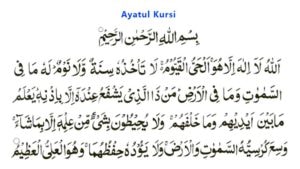 Ayatul Kursi
بِسْمِ اللهِ الرَّحْمٰنِ الرَّحِيْمِ
اَللهُ لَا اِلٰهَ اِلَّا هُوَ اَلْحَيُّ الْقَيُّوْمُ لَا تَاْخُذُهٗ سِنَةٌ وَّلَا نَوْمٌ لَهٗ مَا فِى
السَّمٰوٰتِ وَمَا فِى الْاَرْضِ مَنْ ذَا الَّذِىْ يَشْفَعُ عِنْدَهٗ اِلَّا بِاِذْنِهٖ يَعْلَمُ
مَا بَيْنَ اَيْدِيْهِمْ وَمَا خَلْفَهُمْ وَلَا يُحِيْطُوْنَ بِشَىْءٍ مِّنْ عِلْمِهٖ اِلَّا بِمَا شَآءَ
وَسِعَ كُرْسِيُّهُ السَّمٰوٰتِ وَالْاَرْضَ وَلَا يَـُٔوْدُهٗ حِفْظُهُمَا وَهُوَ الْعَلِىُّ الْعَظِيْمُ